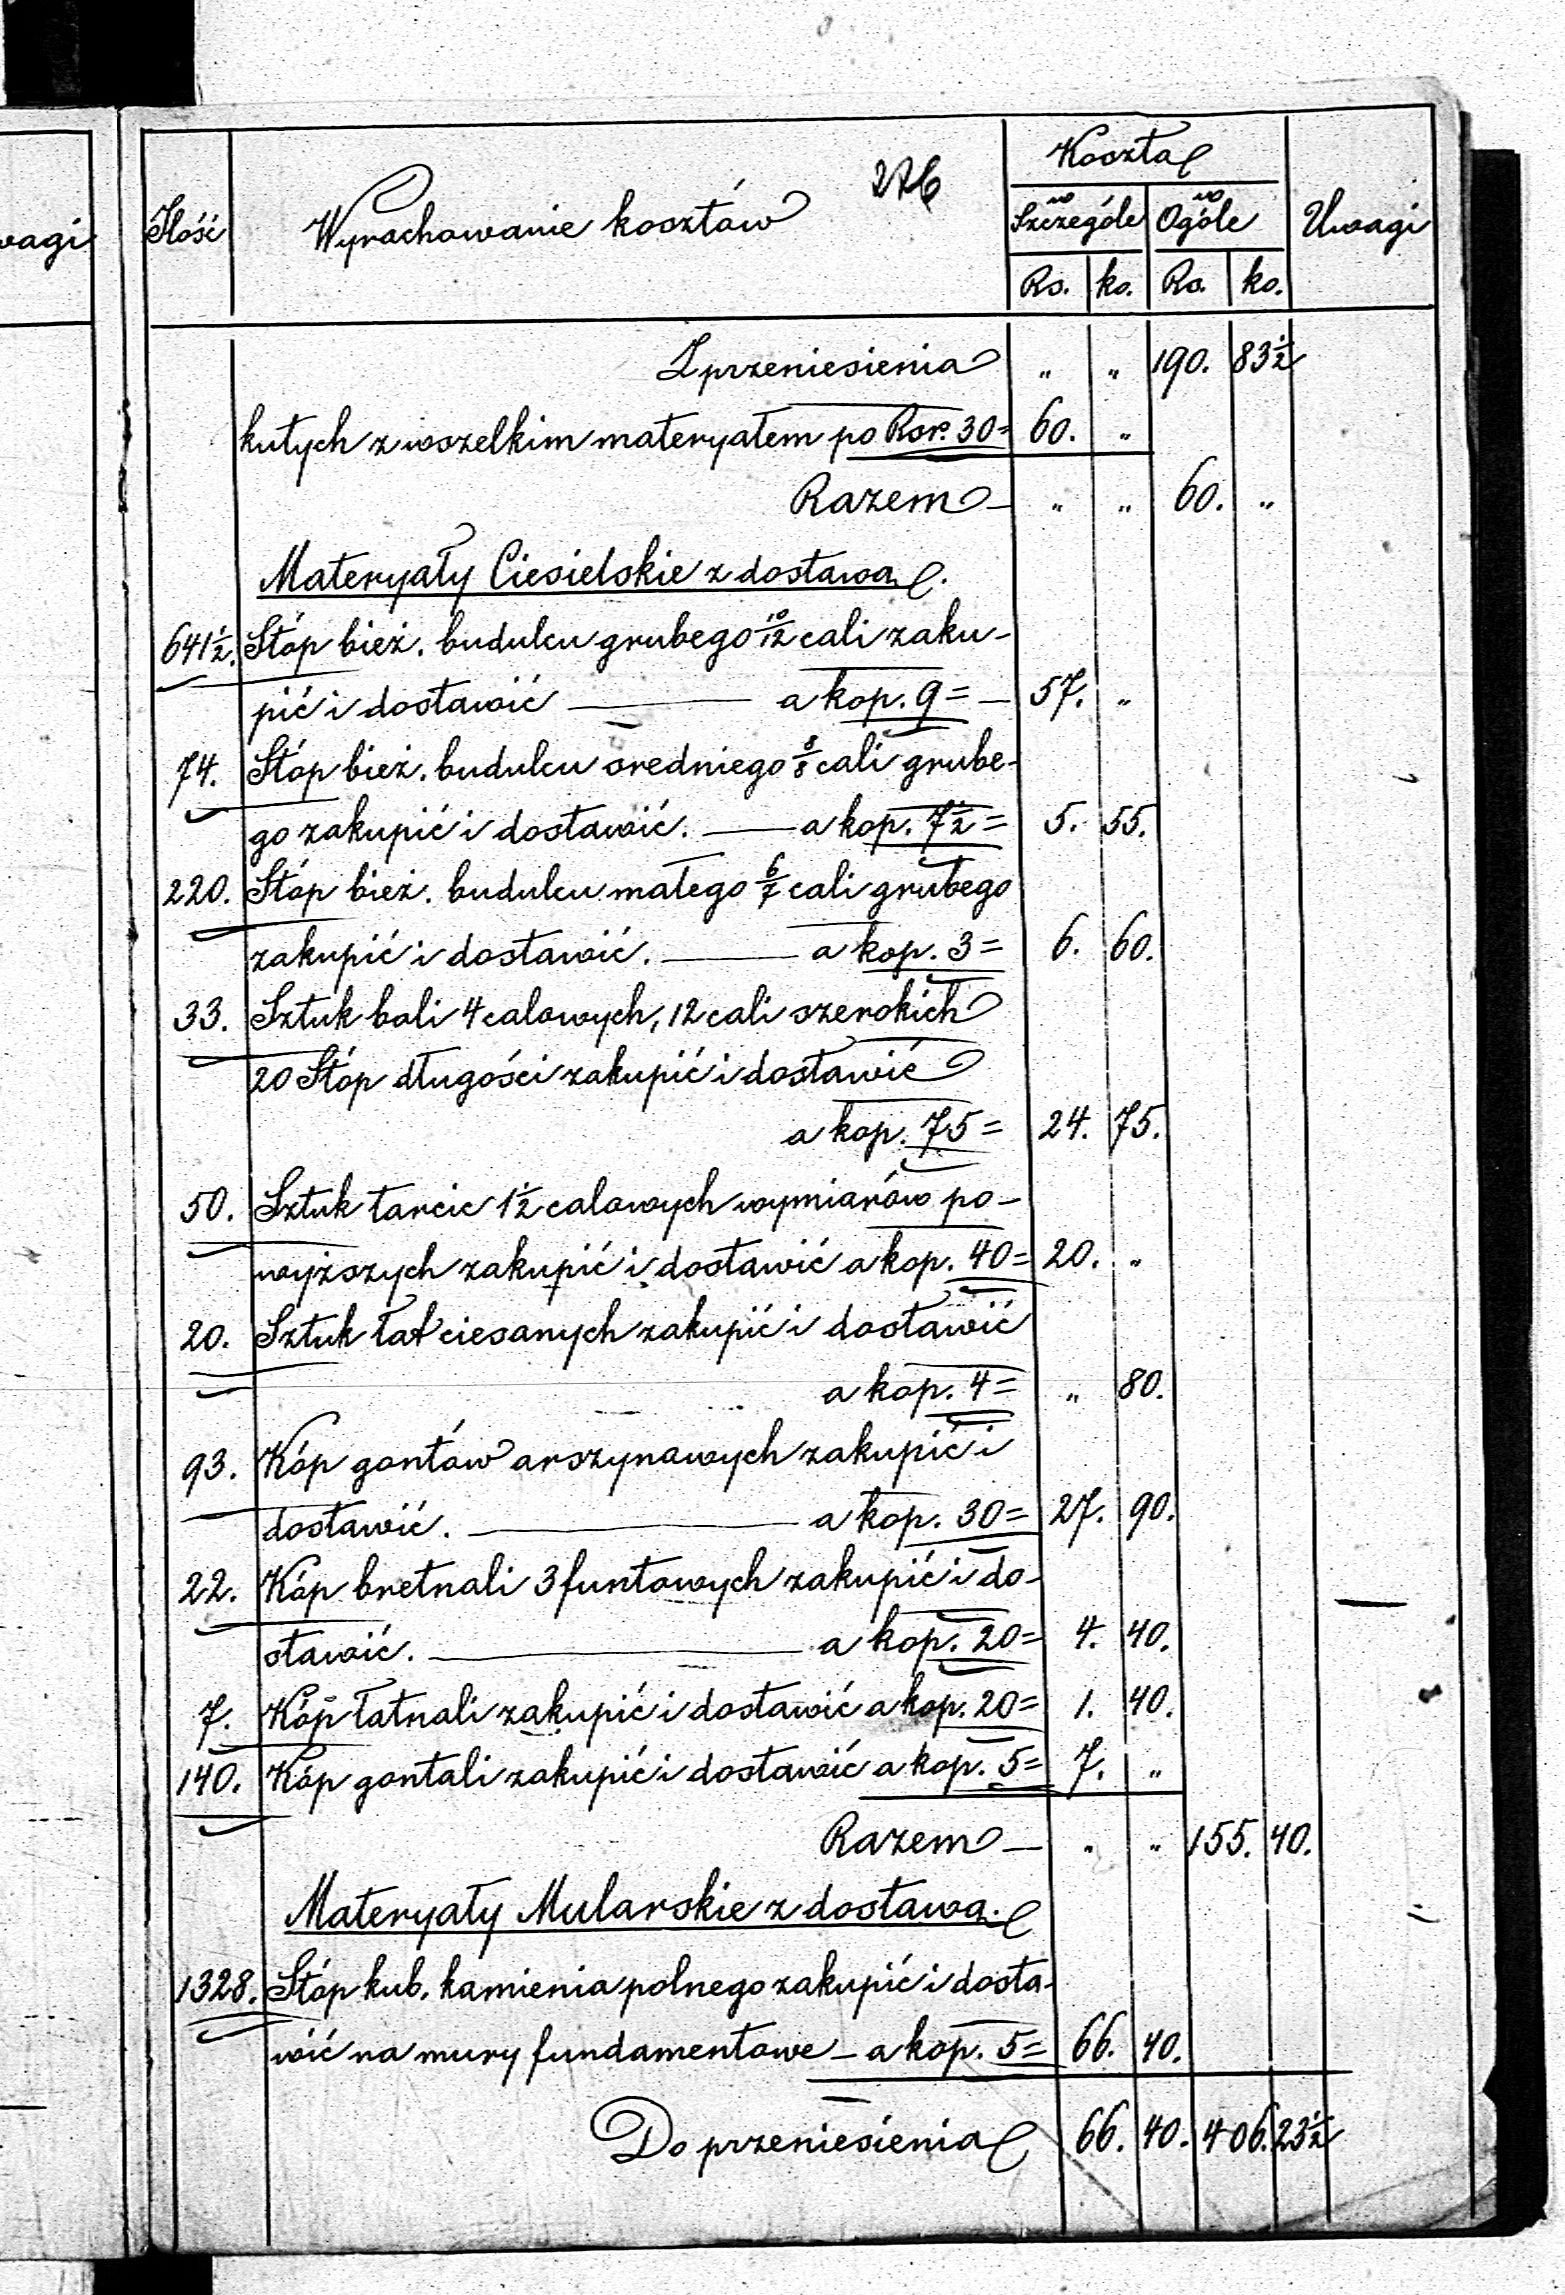 276
Koszta
w w
wagi Ilość Wyrachowanie kosztów Szczególe Ogóle Uwagi
Rs. ko. Rs. ko.
Z przeniesienia " " 190. 83½
kutych z wszelkim materyałem po Rsr. 30= 60. "
Razem — " " 60. "
Materyały Ciesielskie z dostawą.
641½. Stóp bież. budulcu grubego 10/12 cali zaku-
pić i dostawić — a kop. 9= — 57. "
74. Stóp bież. budulcu średniego 8/8 cali grube-
go zakupić i dostawić. — a kop. 7½= 5. 55.
220. Stóp bież. budulcu małego 6/7 cali grubego
zakupić i dostawić. — a kop. 3= 6. 60.
33. Sztuk bali 4 calowych, 12 cali szerokich
20 Stóp długości zakupić i dostawić
a kop. 75= 24. 75.
50. Sztuk tarcic 1½ calowych wymiarów po-
wyższych zakupić i dostawić a kop. 40= 20. "
20. Sztuk łat ciesanych zakupić i dostawić
a kop. 4= " 80.
93. Kóp gontów arszynowych zakupić i
dostawić. — a kop. 30= 27. 90.
22. Kóp bretnali 3 funtowych zakupić i do-
stawić. — a kop. 20= 4. 40.
7. Kóp łatnali zakupić i dostawić a kop. 20= 1. 40.
140. Kóp gontali zakupić i dostawić a kop. 5= 7. "
Razem — " " 155. 40.
Materyały Mularskie z dostawą.
1328. Stóp kub. kamienia polnego zakupić i dosta-
wić na mury fundamentowe — a kop. 5= 66. 40.
Do przeniesienia 66. 40. 406. 23½